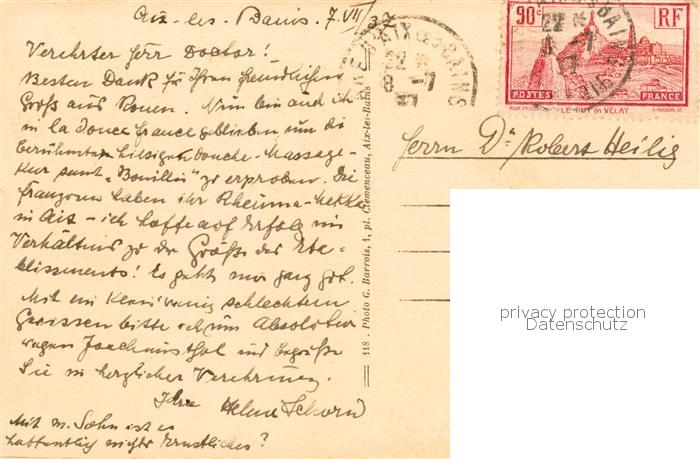 Aix-les-Bains, 7.VII/37
Verehrter Herr Doctor!
Besten Dank für Ihren freundlichen
Gruß aus Rouen. Nun bin auch ich
in la douce france geblieben, um die
berühmte hiesige Douche-Massage-
Kur samt "Bouillon" zu erproben. Die
Franzosen haben ihr Rheuma-Mekka
in Aix – ich hoffe auf Erfolg im
Verhältnis zu der Größe des Eta-
blissements! Es geht mir ganz gut.
Mit ein klein wenig schlechten
Gewissen bitte ich um Absolution
wegen Joachimsthal und begrüße
Sie in herzlicher Verehrung.
Ihre
Mit m. Sohn ist es
hoffentlich nichts Ernstliches?
118 - Photo G. Barrois, 1, pl. Clemenceau, Aix-les-Bains
AIX LES BAINS
22
8 -7
37
90c
RF
POSTES
FRANCE
LE PUY en VELAY
Herrn Dr Robert Heilig
privacy protection
Datenschutz